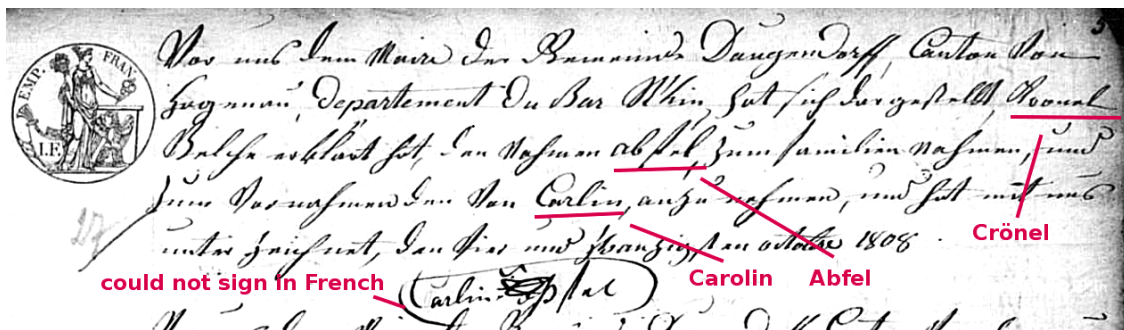 EMP. FRAN.
I.F.
5
Vor uns dem Maire der Gemeinde Daugendorff, Canton Von
Hagenau, departement du Bas Rhin, hat sich dargestellt Kronel
Welche erklärt hat, den Nahmen abfel, zum familien Nahmen, und
zum Vornahmen den Von Carlin, anzu nehmen, und hat mit uns
unter zeichnet, den Vier und Zwanzigsten octobre 1808.
27
Crönel
Carolin
Abfel
could not sign in French
Carlin